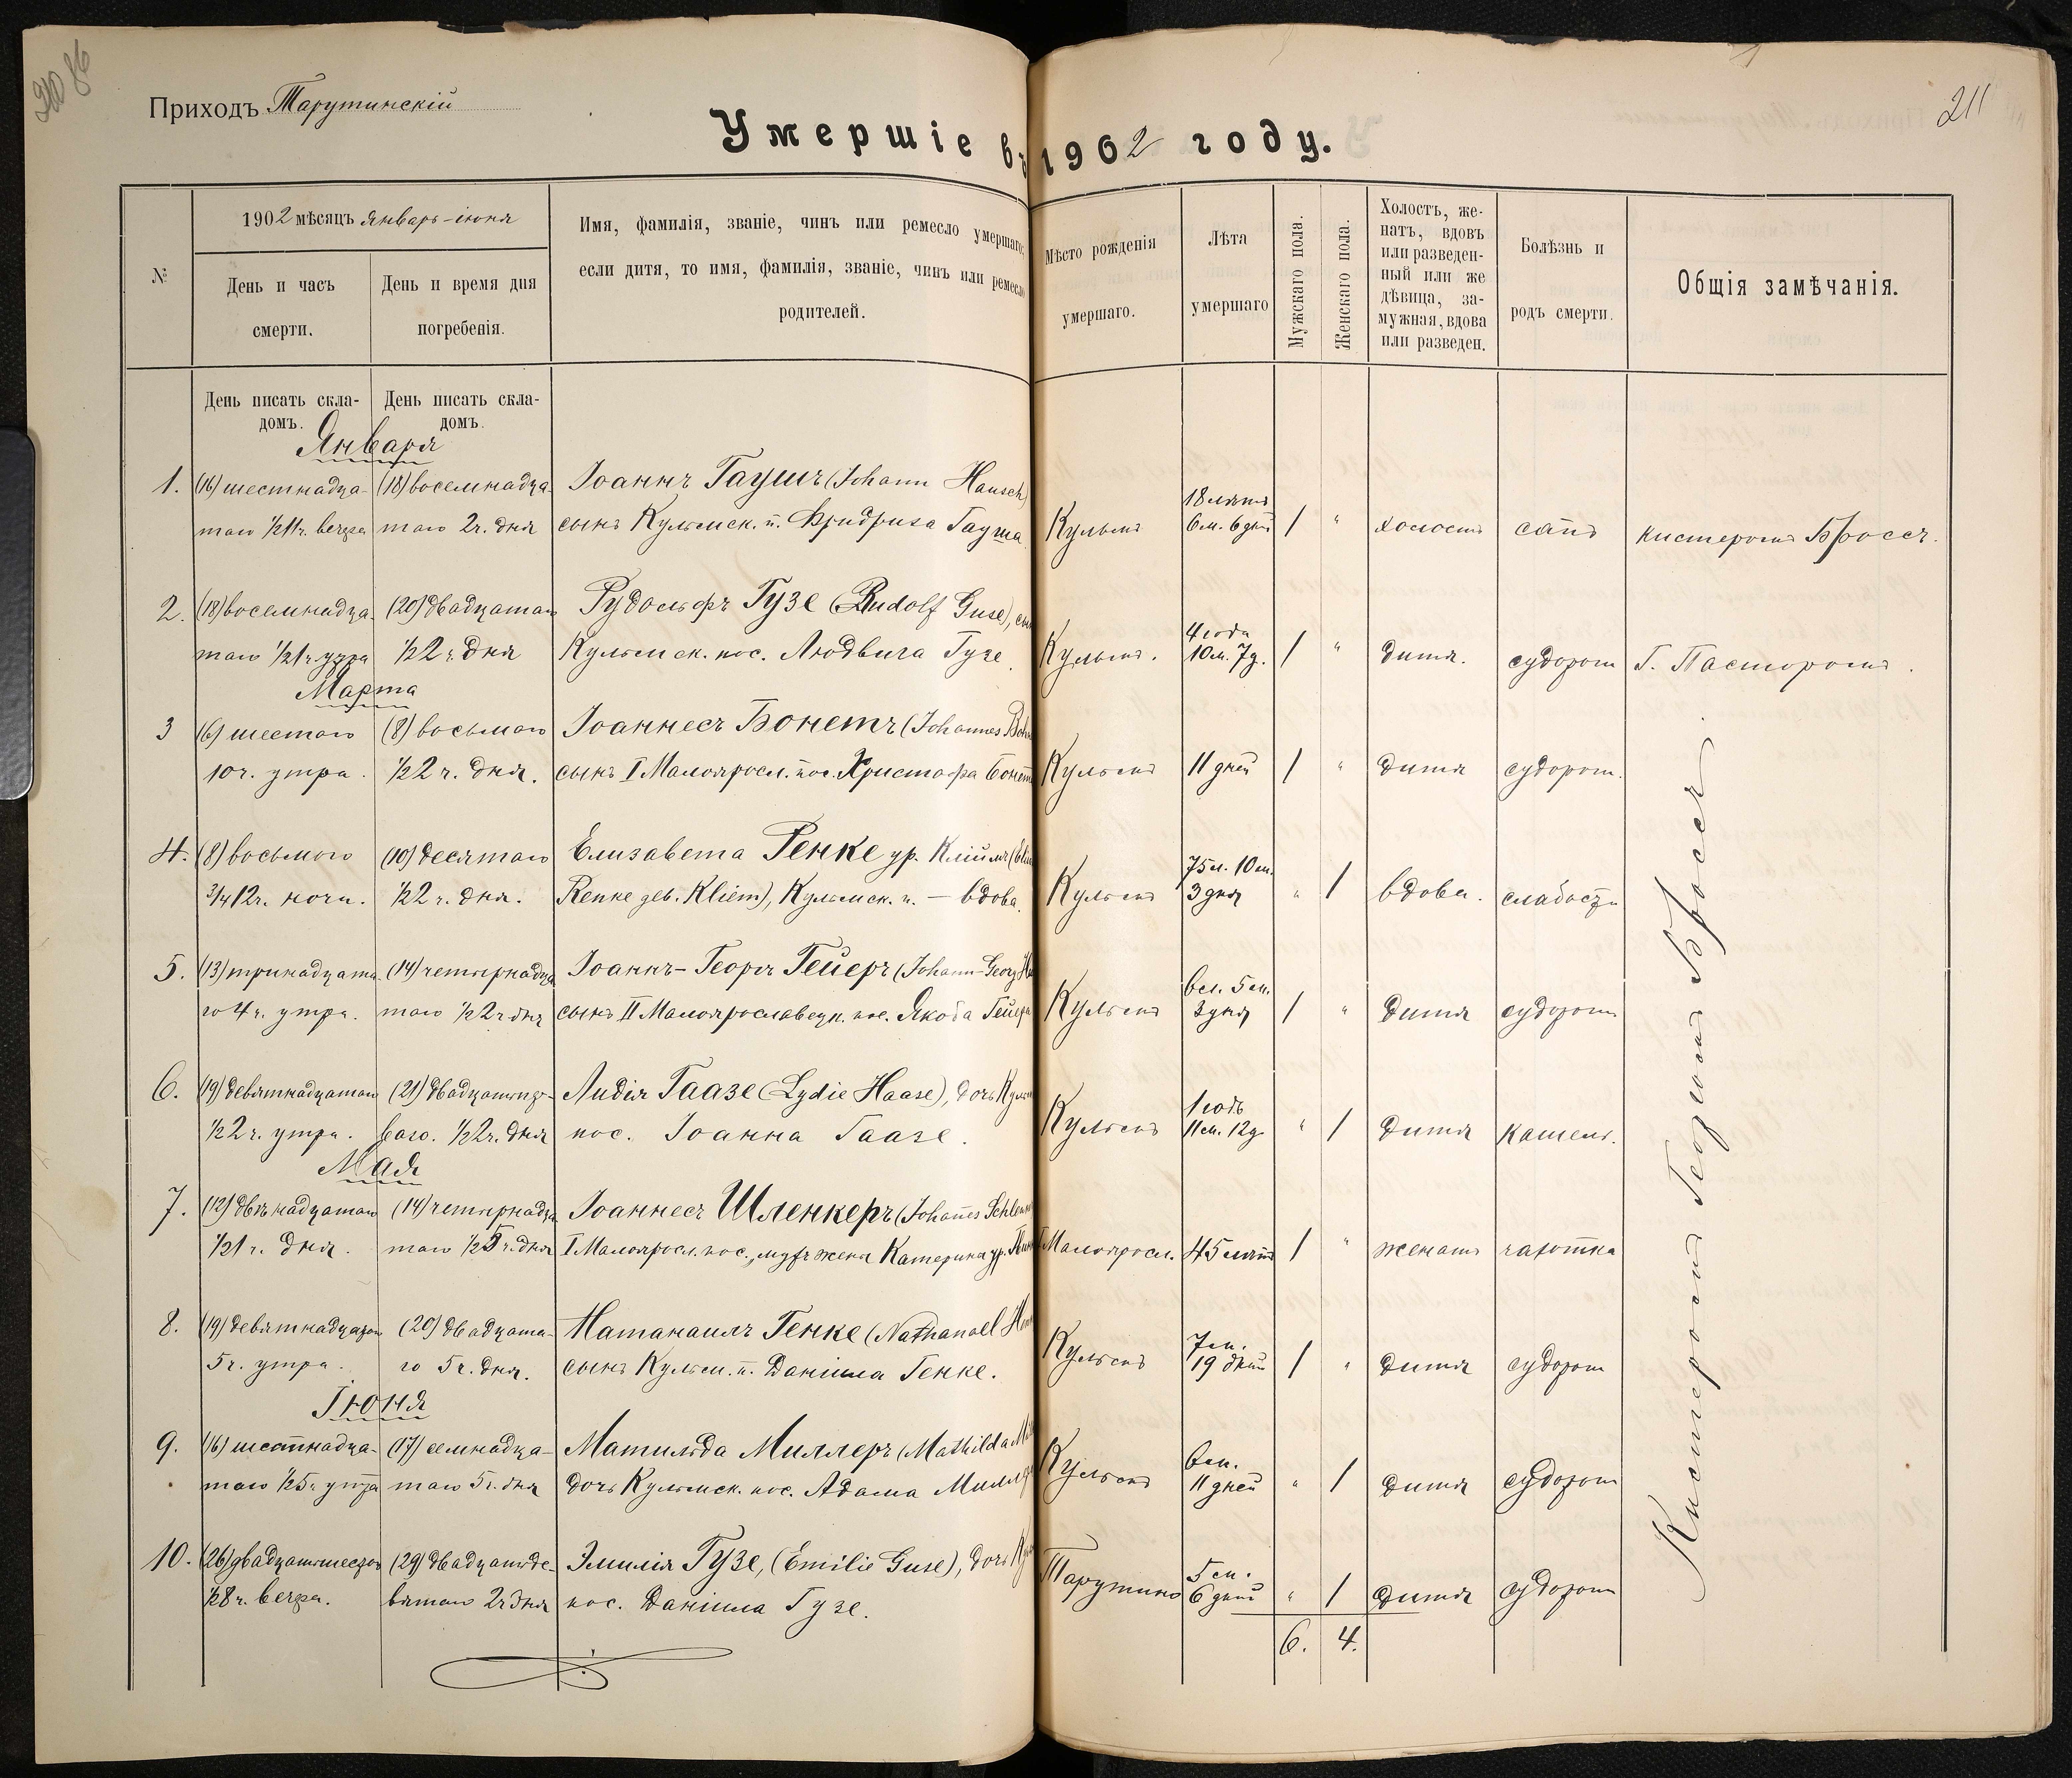 86
Приходъ Тарутинскій
211
Умершіе въ 1902 году.
№
1902 мѣсяцъ Январь-іюня
День и часъ смерти.
День и время дня погребенія.
Имя, фамилія, званіе, чинъ или ремесло умершаго,
если дитя, то имя, фамилія, званіе, чинъ или ремесло
родителей.
Мѣсто рожденія
умершаго.
Лѣта
умершаго
Мужскаго пола.
Женскаго пола.
Холостъ, же-
натъ, вдовъ
или разведен-
ный или же
дѣвица, за-
мужная, вдова
или разведен.
Болѣзнь и
родъ смерти.
Общія замѣчанія.
День писать скла-
домъ.
День писать скла-
домъ.
Января
1. (16) шестнадца- (18) восемнадца- Іоаннъ Гаушъ (Johann Hausch)
таго ½11ч. вечера таго 2ч. дня сынъ Кульмск. п. Фридриха Гауша Кульмъ 18 лѣтъ 6 м. 6 дней 1 " холостъ сапъ кистеромъ Броссъ.
2. (18) восемнадца- (20) двадцатаго Рудольфъ Гузе (Rudolf Guse), сын
таго ½1ч. утра ½2 ч. дня Кульмск. пос. Людвига Гузе. Кульмъ. 4 года 10 м. 7 д. 1 " дитя. судорогъ Г. Пасторомъ.
Марта
3 (6) шестаго (8) восьмаго Іоаннесъ Бонетъ (Johannes
10ч. утра. ½2 ч. дня. сынъ I Малояросл. пос. Христофа Бонет Кульмъ 11 дней 1 " дитя судорог.
4. (8) восьмого (10) десятаго Елизавета Ренке ур. Клiймъ
¾12ч. ночи. ½2 ч. дня. Renke geb. Kliem), Кульмск. п. — вдова. Кульмъ 75 л. 10 м. 3 дня " 1 вдова. слабости
5. (13) тринадцата- (14) четырнадца- Іоаннъ-Георгъ Гейеръ (Johann-Georg
го 4 ч. утра. таго ½2ч дня сынъ II Малоярославецк. пос. Якоба Гейера Кульмъ 6 л. 5 м. 3 дня 1 " дитя судорогъ
6. (19) девятнадцатаго (21) двадцатьпер- Лидія Гаазе (Lydie Haase), дочь Кульм
½2 ч. утра. ваго. ½2ч. дня пос. Іоанна Гаазе. Кульмъ 1 годъ 11 м. 12 д. " 1 дитя кашель.
Мая
7. (12) двѣнадцатаго (14) четырнадца- Іоаннесъ Шленкеръ (Johañes
½1 ч. дня. таго ½5 ч. дня I Малояросл. пос., мужъ жены Катерины ур. I Малояросл. 45 лѣтъ 1 " женатъ чахотка
8. (19) девятнадцатаго (20) двадцата- Натанаилъ Генке (Nathanael
5 ч. утра. го 5 ч. дня. сынъ Кульм. п. Даніила Генке. Кульмъ 7 м. 19 дней 1 " дитя судорог
Іюня
9. (16) шестнадца- (17) семнадца- Матильда Миллеръ (Mathilda
таго ½5ч. утра таго 5ч. дня дочь Кульмск. пос. Адама Миллера Кульмъ 6 м. 11 дней " 1 дитя судорог
10. (26) двадцатьшестого (29) двадцатьде- Эмилія Гузе, (Emilie Guse), дочь
½8 ч. вечера. вятаго 2ч дня пос. Даніила Гузе. Тарутино 5 м. 6 дней " 1 дитя судорог
6. 4.
Кистеромъ Георгомъ Броссъ.